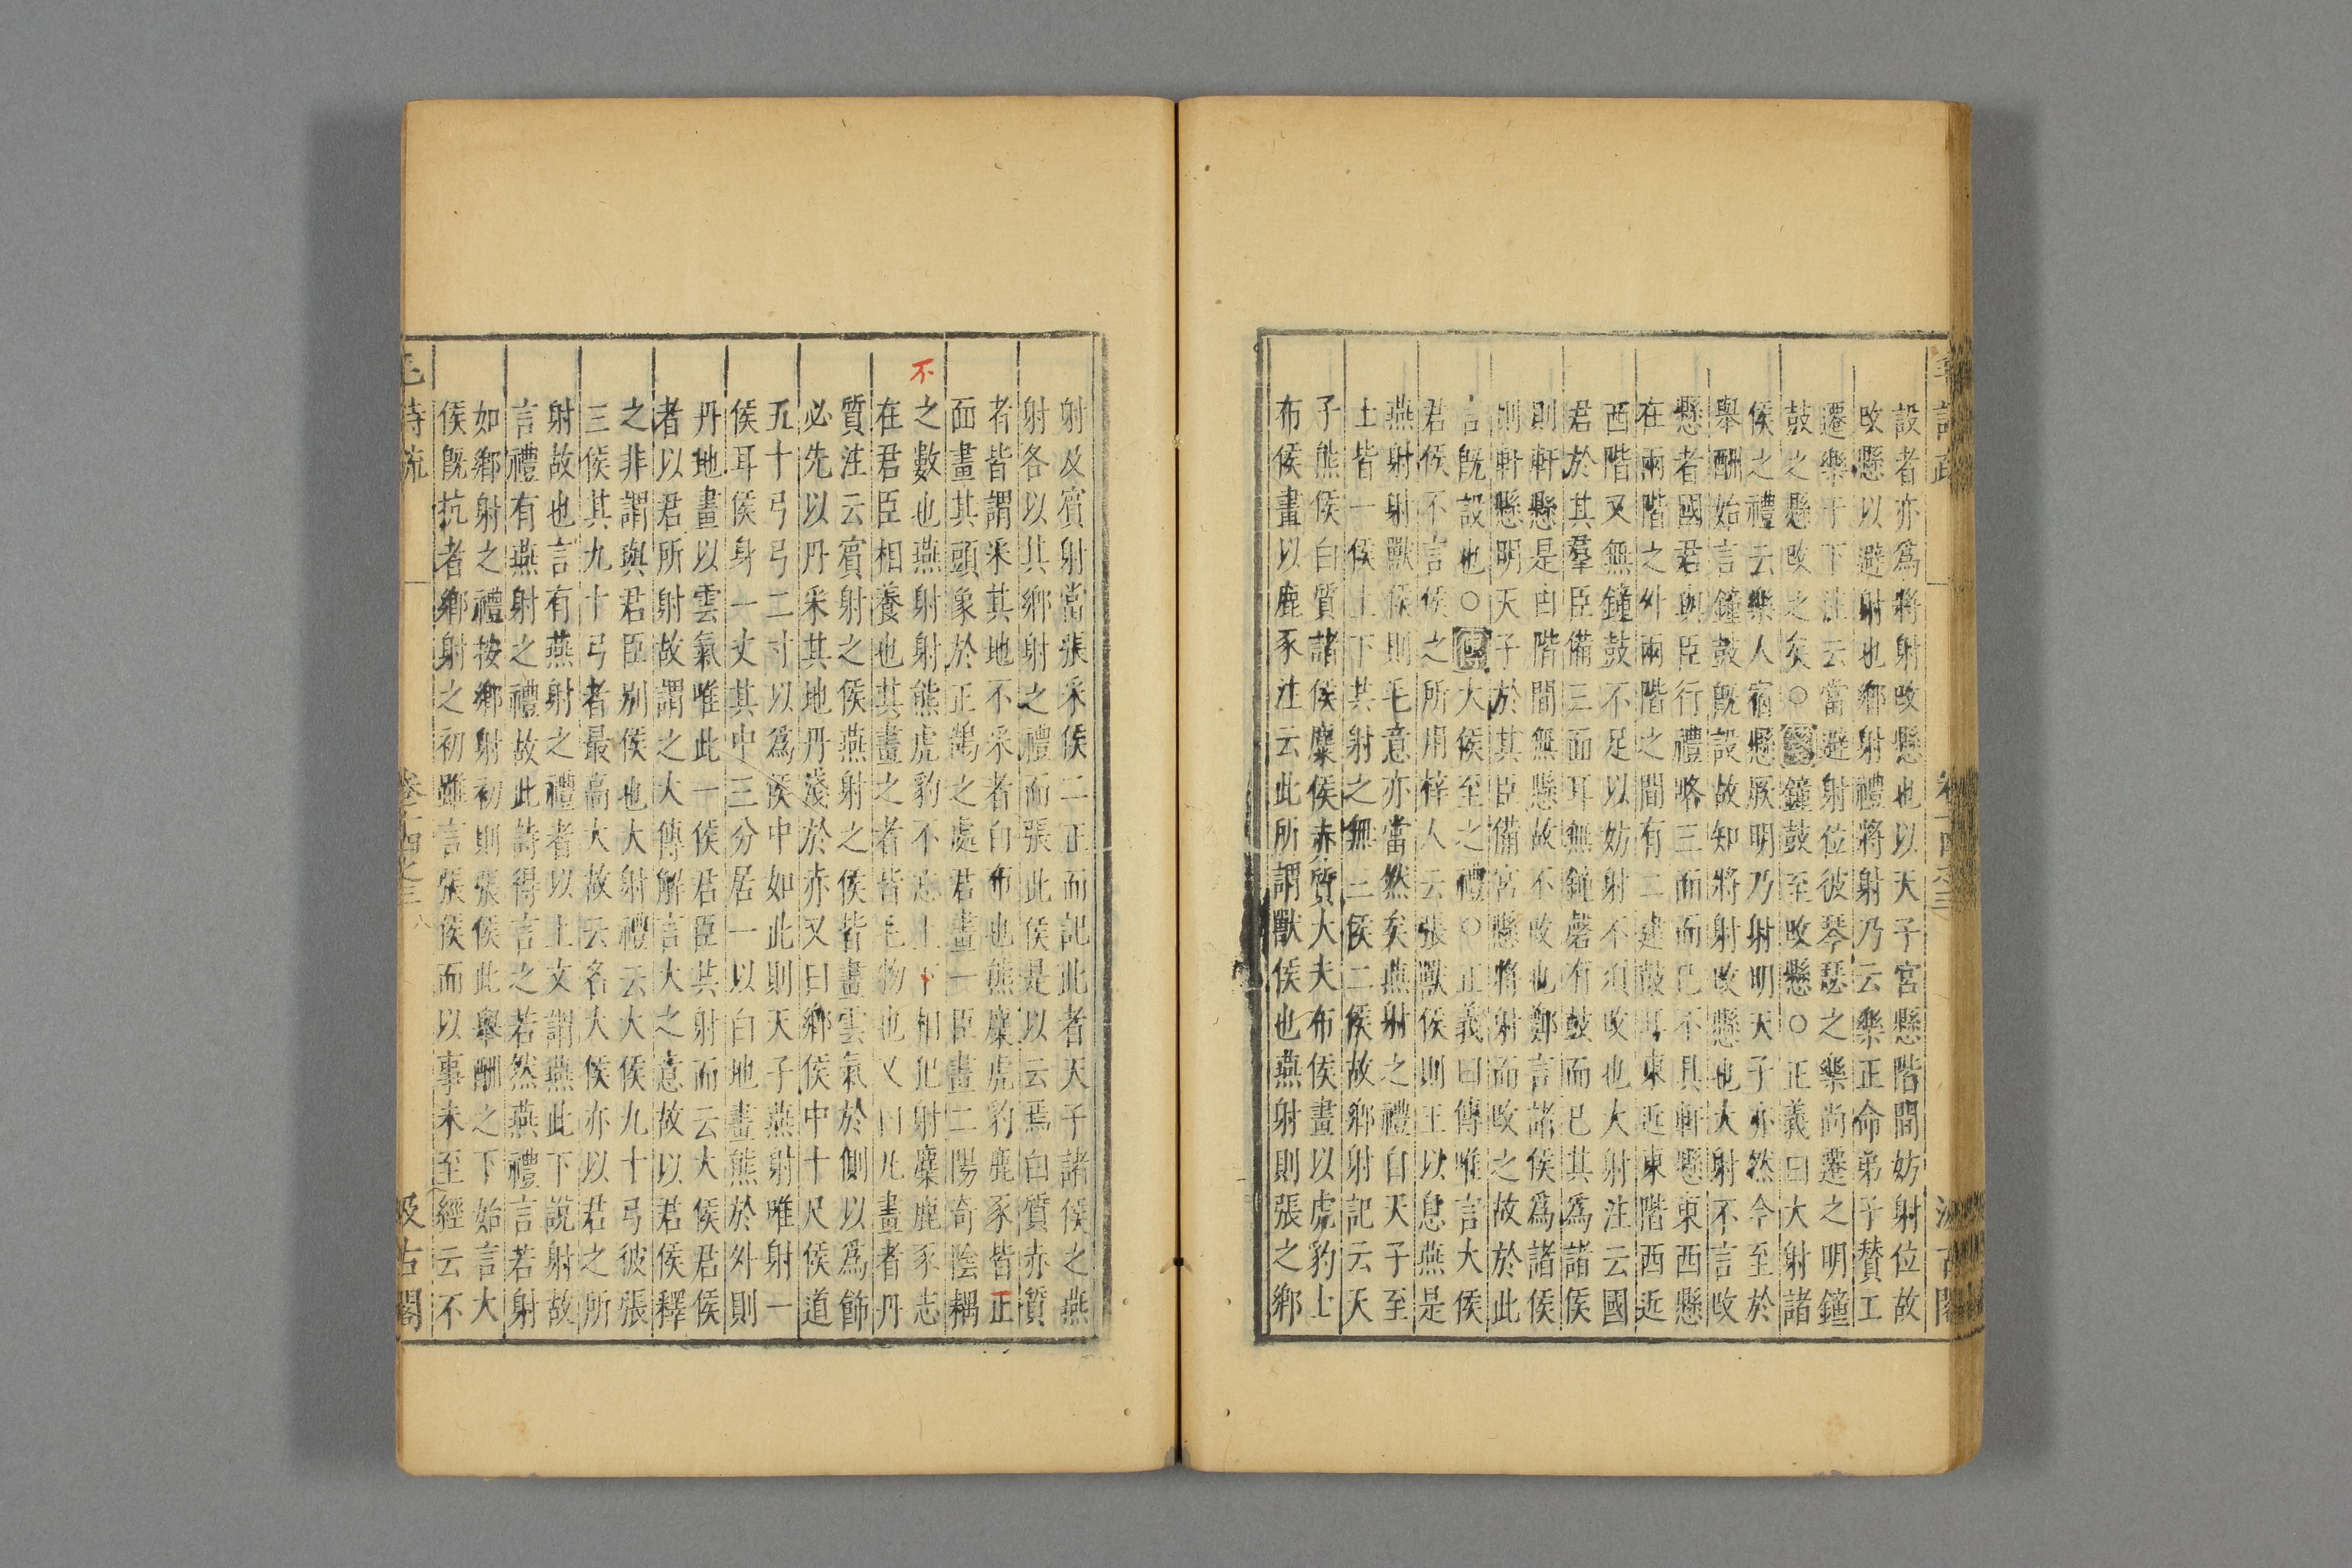 設者亦爲將射改懸也以天子宮懸階間妨射位故
改懸以避射也鄉射禮將射乃云樂正命弟子贊工
遷樂于下注云當避射位彼琴瑟之樂尚遷之明鐘
鼓之懸改之矣○鐘鼓至改懸○正義曰大射諸
侯之禮云樂人宿懸厥明乃射明天子亦然今至於
舉酬始言鐘鼓旣設故知將射改懸也大射不言改
懸者國君與臣行禮略三面而已不具軒懸東西懸
在兩階之外兩階之間有二建鼓耳東近東階西近
西階又無鐘鼓不足以妨射不須改也大射注云國
君於其羣臣備三面耳無鐘磬有鼓而已其爲諸侯
則軒懸是由階間無懸故不改也鄭言諸侯爲諸侯
則軒懸明天子於其臣備宮懸將射而改之故於此
言旣設也○大侯至之禮○正義曰傳唯言大侯
君侯不言侯之所用梓人云張獸侯則王以息燕是
燕射射獸侯則毛意亦當然矣燕射之禮自天子至
士皆一侯上下共射之無三侯二侯故鄉射記云天
子熊侯白質諸侯麋侯赤質大夫布侯畫以虎豹士
布侯畫以鹿豕注云此所謂獸侯也燕射則張之鄉
射及賓射當張采侯二正而記此者天子諸侯之燕
射各以其鄉射之禮而張此侯是以云焉白質赤質
者皆謂采其地不采者白布也熊麋虎豹鹿豕皆正
面畫其頭象於正鵠之處君畫一臣畫二陽奇陰耦
之數也燕射射熊虎豹不忘上下相犯射麋鹿豕志
不
在君臣相養也其畫之者皆毛物也又曰凡畫者丹
質注云賓射之侯燕射之侯皆畫雲氣於側以爲飾
必先以丹采其地丹淺於赤又曰鄉侯中十尺侯道
五十弓弓二寸以爲侯中如此則天子燕射唯射一
侯耳侯身一丈其中三分居一以白地畫熊於外則
丹地畫以雲氣唯此一侯君臣共射而云大侯君侯
者以君所射故謂之大傳解言大之意故以君侯釋
之非謂與君臣別侯也大射禮云大侯九十弓彼張
三侯其九十弓者最高大故云名大侯亦以君之所
射故也言有燕射之禮者以上文謂燕此下說射故
言禮有燕射之禮故此詩得言之若然燕禮言若射
如鄉射之禮按鄉射初則張侯此舉酬之下始言大
侯旣抗者鄉射之初雖言張侯而以事未至經云不